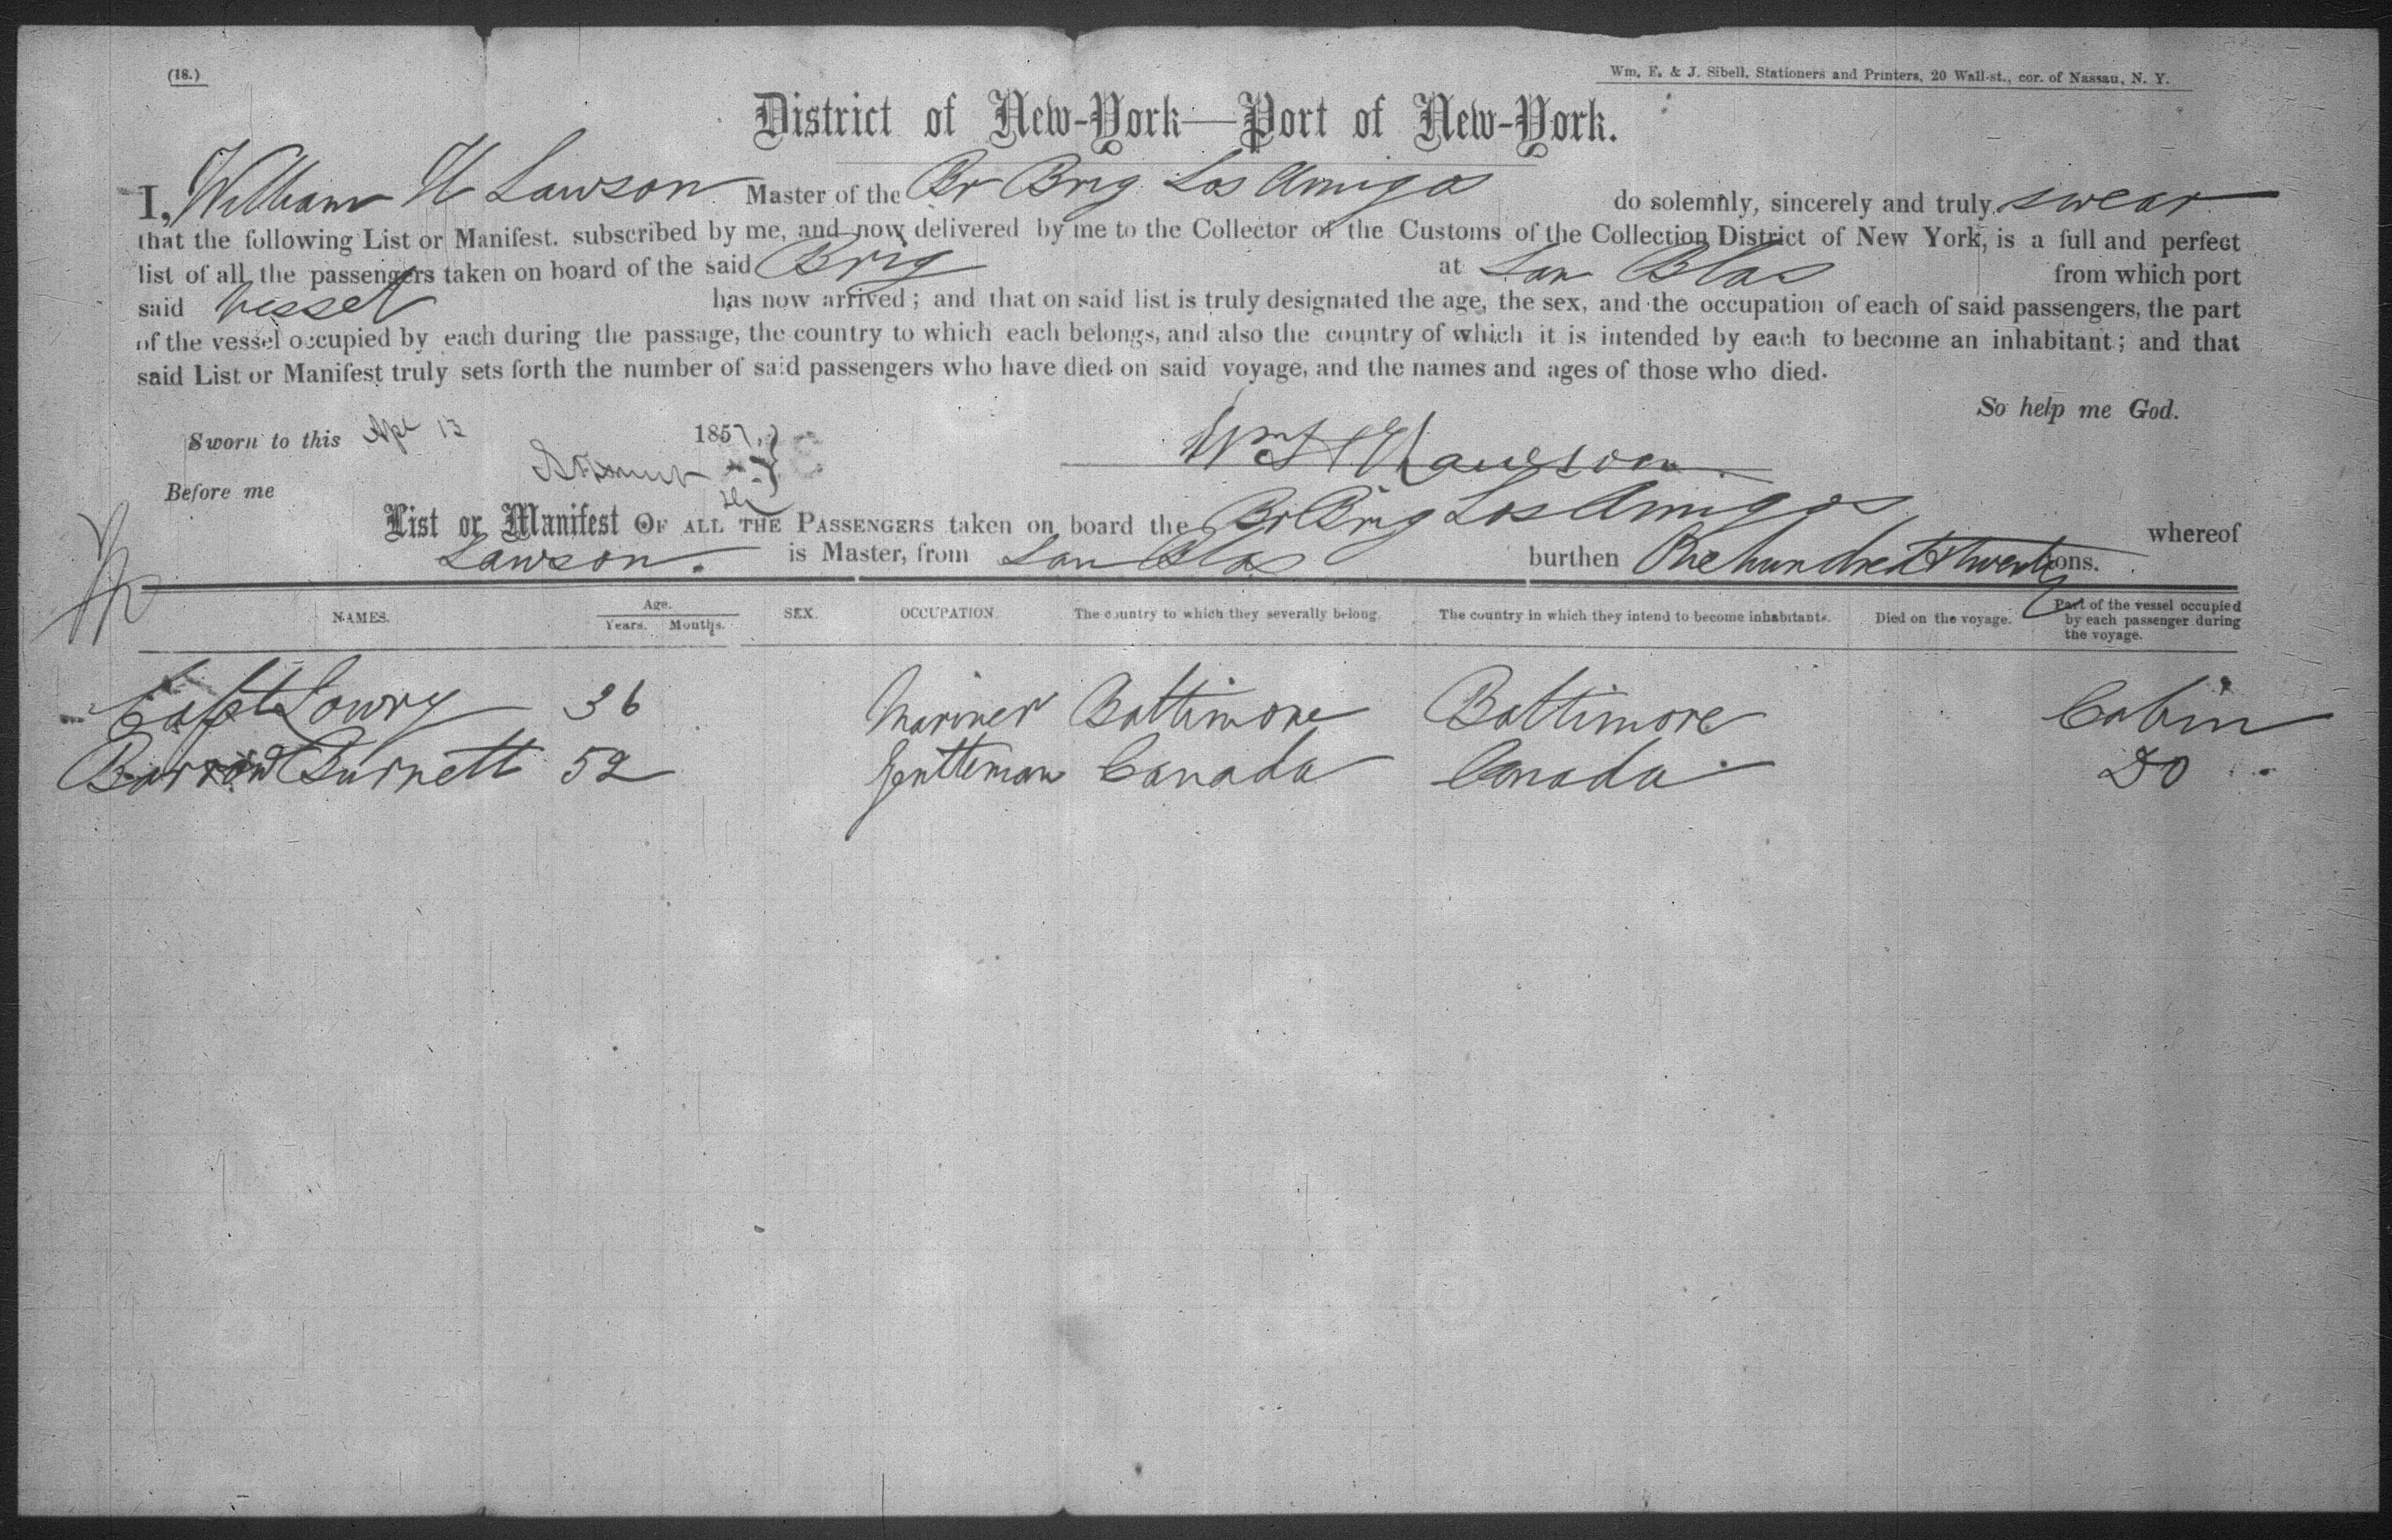 (18.)
Wm. E. & J. Sibell, Stationers and Printers, 20 Wall-st., cor. of Nassau, N. Y.
District of New-York—Port of New-York.
I, William H Lawson Master of the Br Brig Los Amigos do solemnly, sincerely and truly, swear
that the following List or Manifest, subscribed by me, and now delivered by me to the Collector of the Customs of the Collection District of New York, is a full and perfect
list of all the passengers taken on board of the said Brig at San Blas from which port
said Vessel has now arrived; and that on said list is truly designated the age, the sex, and the occupation of each of said passengers, the part
of the vessel occupied by each during the passage, the country to which each belongs, and also the country of which it is intended by each to become an inhabitant; and that
said List or Manifest truly sets forth the number of said passengers who have died on said voyage, and the names and ages of those who died.
So help me God.
Sworn to this Apl 13 1857,
Wm H Lawson
Before me
List or Manifest OF ALL THE PASSENGERS taken on board the Br Brig Los Amigos whereof
Lawson. is Master, from San Blas burthen One hundred & twenty tons.
NAMES. Age. Years. Months. SEX. OCCUPATION. The country to which they severally belong. The country in which they intend to become inhabitants. Died on the voyage. Part of the vessel occupied by each passenger during the voyage.
Capt Lowry 36 Mariner Baltimore Baltimore Cabin
Burnett 52 Gentleman Canada Canada Do